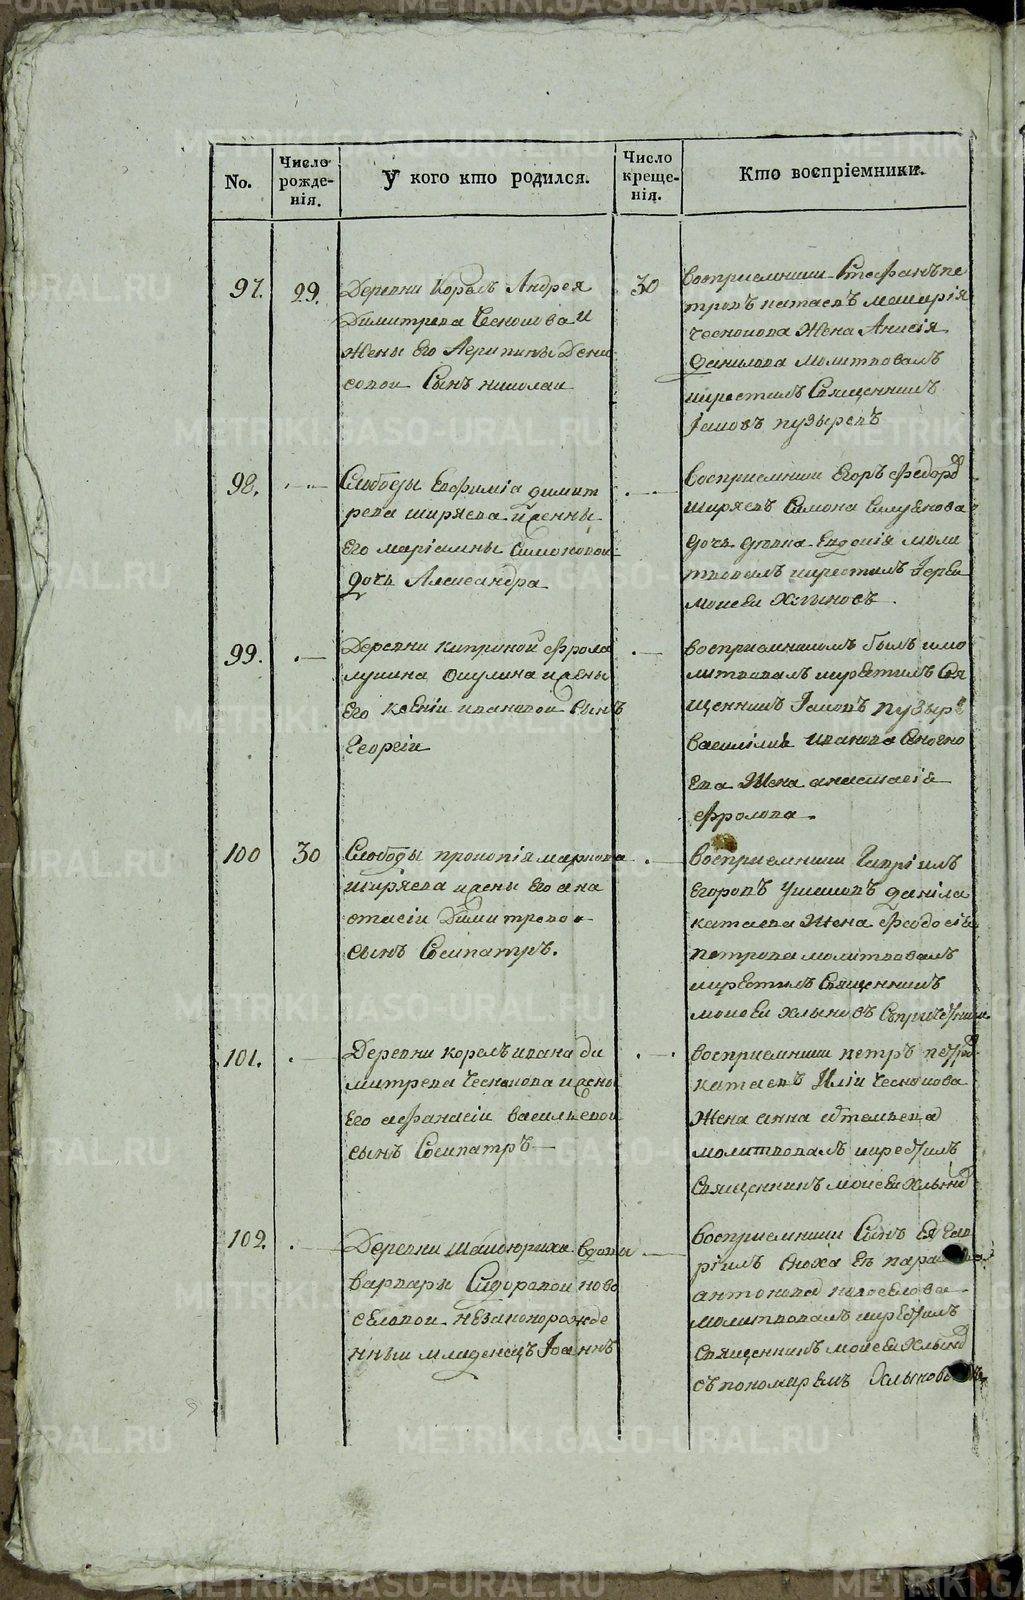 No.
Число рожде-нія.
У кого кто родился.
Число креще-нія.
Кто воспріемники.
97.
29.
Деревни Корелъ Андрея
Димитрева Чеснокова и
жены Его Агрипины Дени
совои Сынъ николаи
30
восприемники Стефанъ пе
тровъ катаевъ
чеснокова Жена Анисія
Данилова молитвовалъ
икрестилъ Священникъ
Іаковъ пузыревъ
98.
Слободы Евфиміа димит
рева ширяева иженны
Его маріамны Симоновои
дочь Александра
восприемники Егоръ Федоровъ
ширяевъ Симона
дочь девка Евдокія моли
твовалъ икрестилъ Іереи
моисеи Хлыновъ.
99.
Деревни киприной Фрола
лукина Окулина ижены
Его Ксеніи ивановои Сынъ
Георгіи
восприемникомъ былъ имо
литвовалъ икрестилъ Свя
щенникъ Іаковъ Пузыревъ
василія иванова
ева Жена анастасія
Фролова.
100
30
Слободы прокопія маркова
ширяева ижены Его ана
стасіи Димитрево
сынъ Сосипатръ.
восприемники Гавріилъ
Егоровъ Ушаковъ даніла
катаева Жена Феодосія
петрова молитвовалъ
икрестилъ Священникъ
моисеи хлыновъ Спричетники.
101.
Деревни корелъ ивана ди
митрева Чеснокова ижены
Его афанасіи васильевои
сынъ Сосипатръ
восприемники петръ петров
катаевъ Иліи Чеснокова
Жена анна
молитвовалъ икрестилъ
Священникъ моисеи Хлынов
102.
Деревни Шайдюриха вдовы
варвары Сидоровои ново
селовои незаконорожде
нныи младенецъ Іоаннъ
восприемники Сынъ Ея Гав
ріилъ Сноха Ея
антонова новоселова
молитвовалъ икрестилъ
Священникъ моисеи Хлынов
съ пономаремъ
METRIKI.GASO-URAL.RU